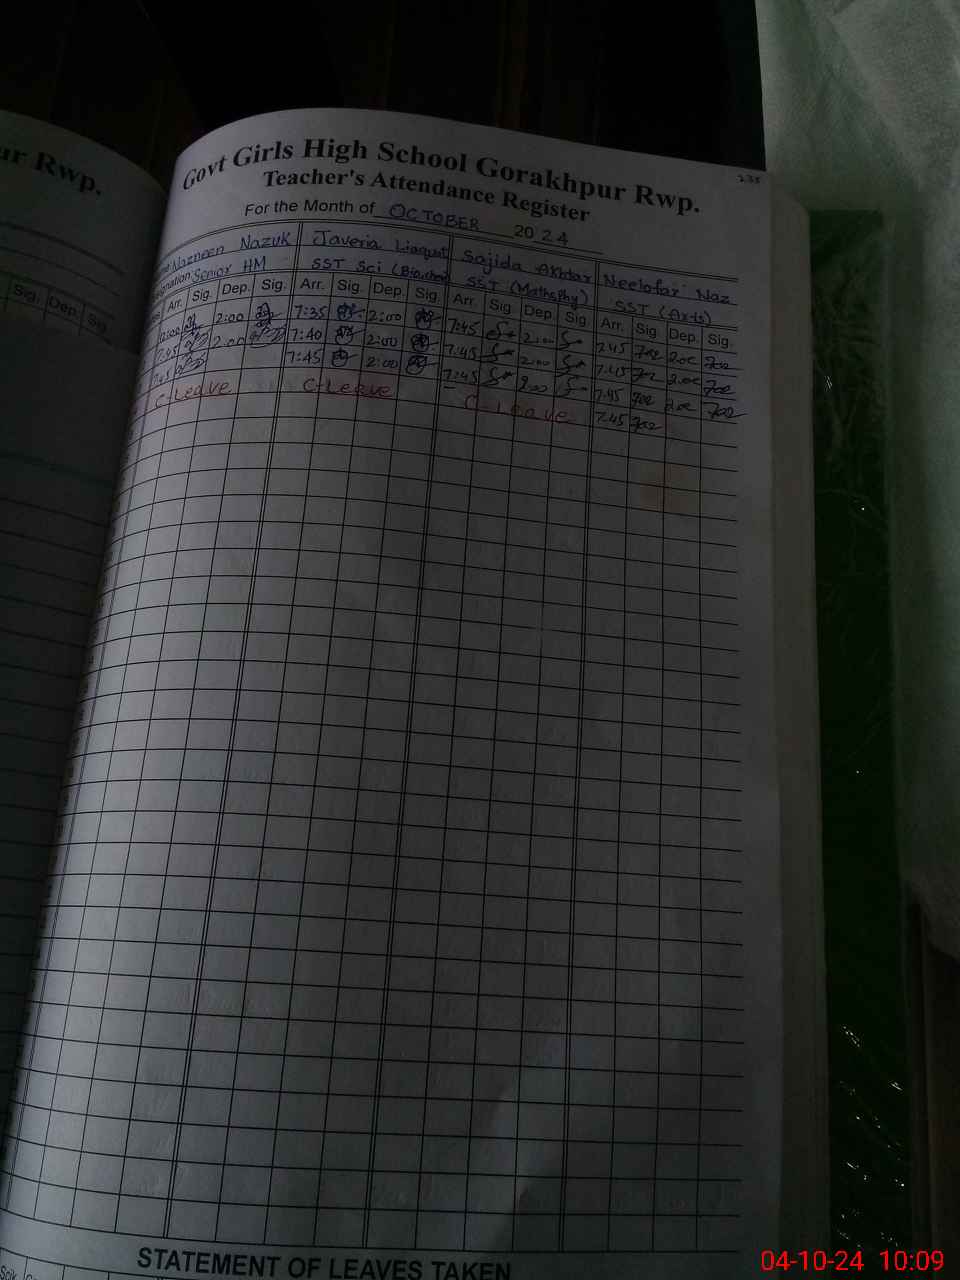 ur Rwp.
Sig. Dep. Sig.
235
Govt Girls High School Gorakhpur Rwp.
Teacher's Attendance Register
For the Month of OCTOBER 2024
Nazneen Nazuk Javeria Liaquat Sajida Akhtar Neelofar Naz
Senior HM SST Sci (Bio,che) SST (Mathsphy) SST (Arts)
Arr. Sig. Dep. Sig. Arr. Sig. Dep. Sig. Arr. Sig. Dep. Sig. Arr. Sig. Dep. Sig.
2:00 7:35 2:00 7:45 2:00 7.45 2.00
7.45 2:00 7:40 2:00 7:45 2:00 7.45 2.00
7.45 7:45 2:00 7:45 2:00 7.45 2.00
C-Leave C-Leave C-Leave 7.45
STATEMENT OF LEAVES TAKEN
04-10-24 10:09